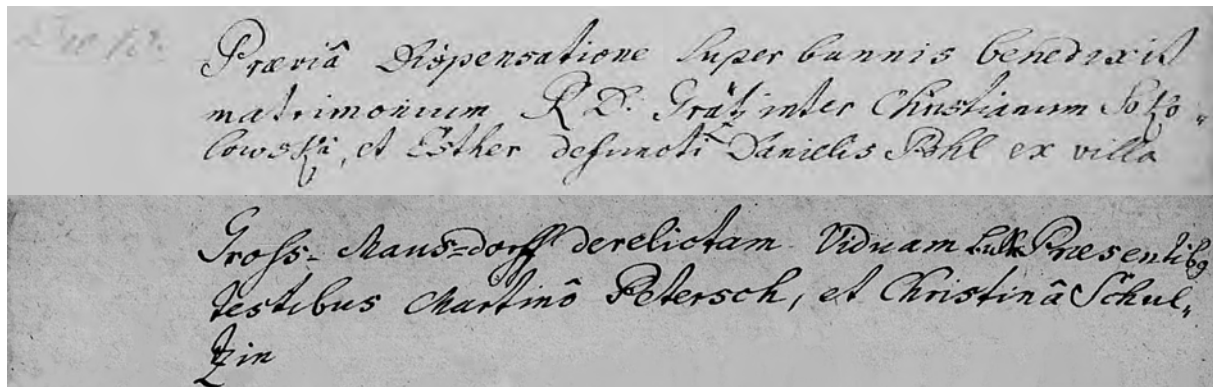 Die 12.
Præviâ Dispensatione super bannis benedixit
matrimonium R D. Grätz inter Christianum Soko„
lowski, et Esther defuncti Danielis Pohl ex villa
Gross-Mausdorff derelictam Viduam Præsentibg
testibus Martinô Petersch, et Christinâ Schul„
tzin